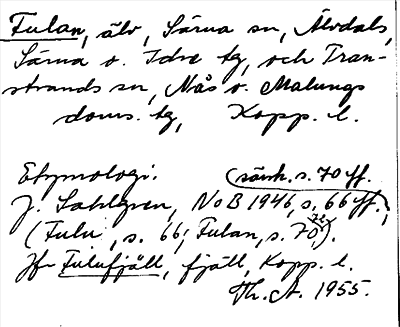 Fulan, älv, Särna sn, Älvdals,
Särna o. Idre tg, och Tran-
strands sn, Nås o. Malungs
doms. tg, Kopp. l.
Etymologi: (särsk. s. 70 ff.
J. Sahlgren, NoB 1946, s. 66 ff.,
(Fulu, s. 66; Fulan, s. 70, 72).
Jfr Fulufjäll, fjäll, Kopp. l.
Th. A. 1955.